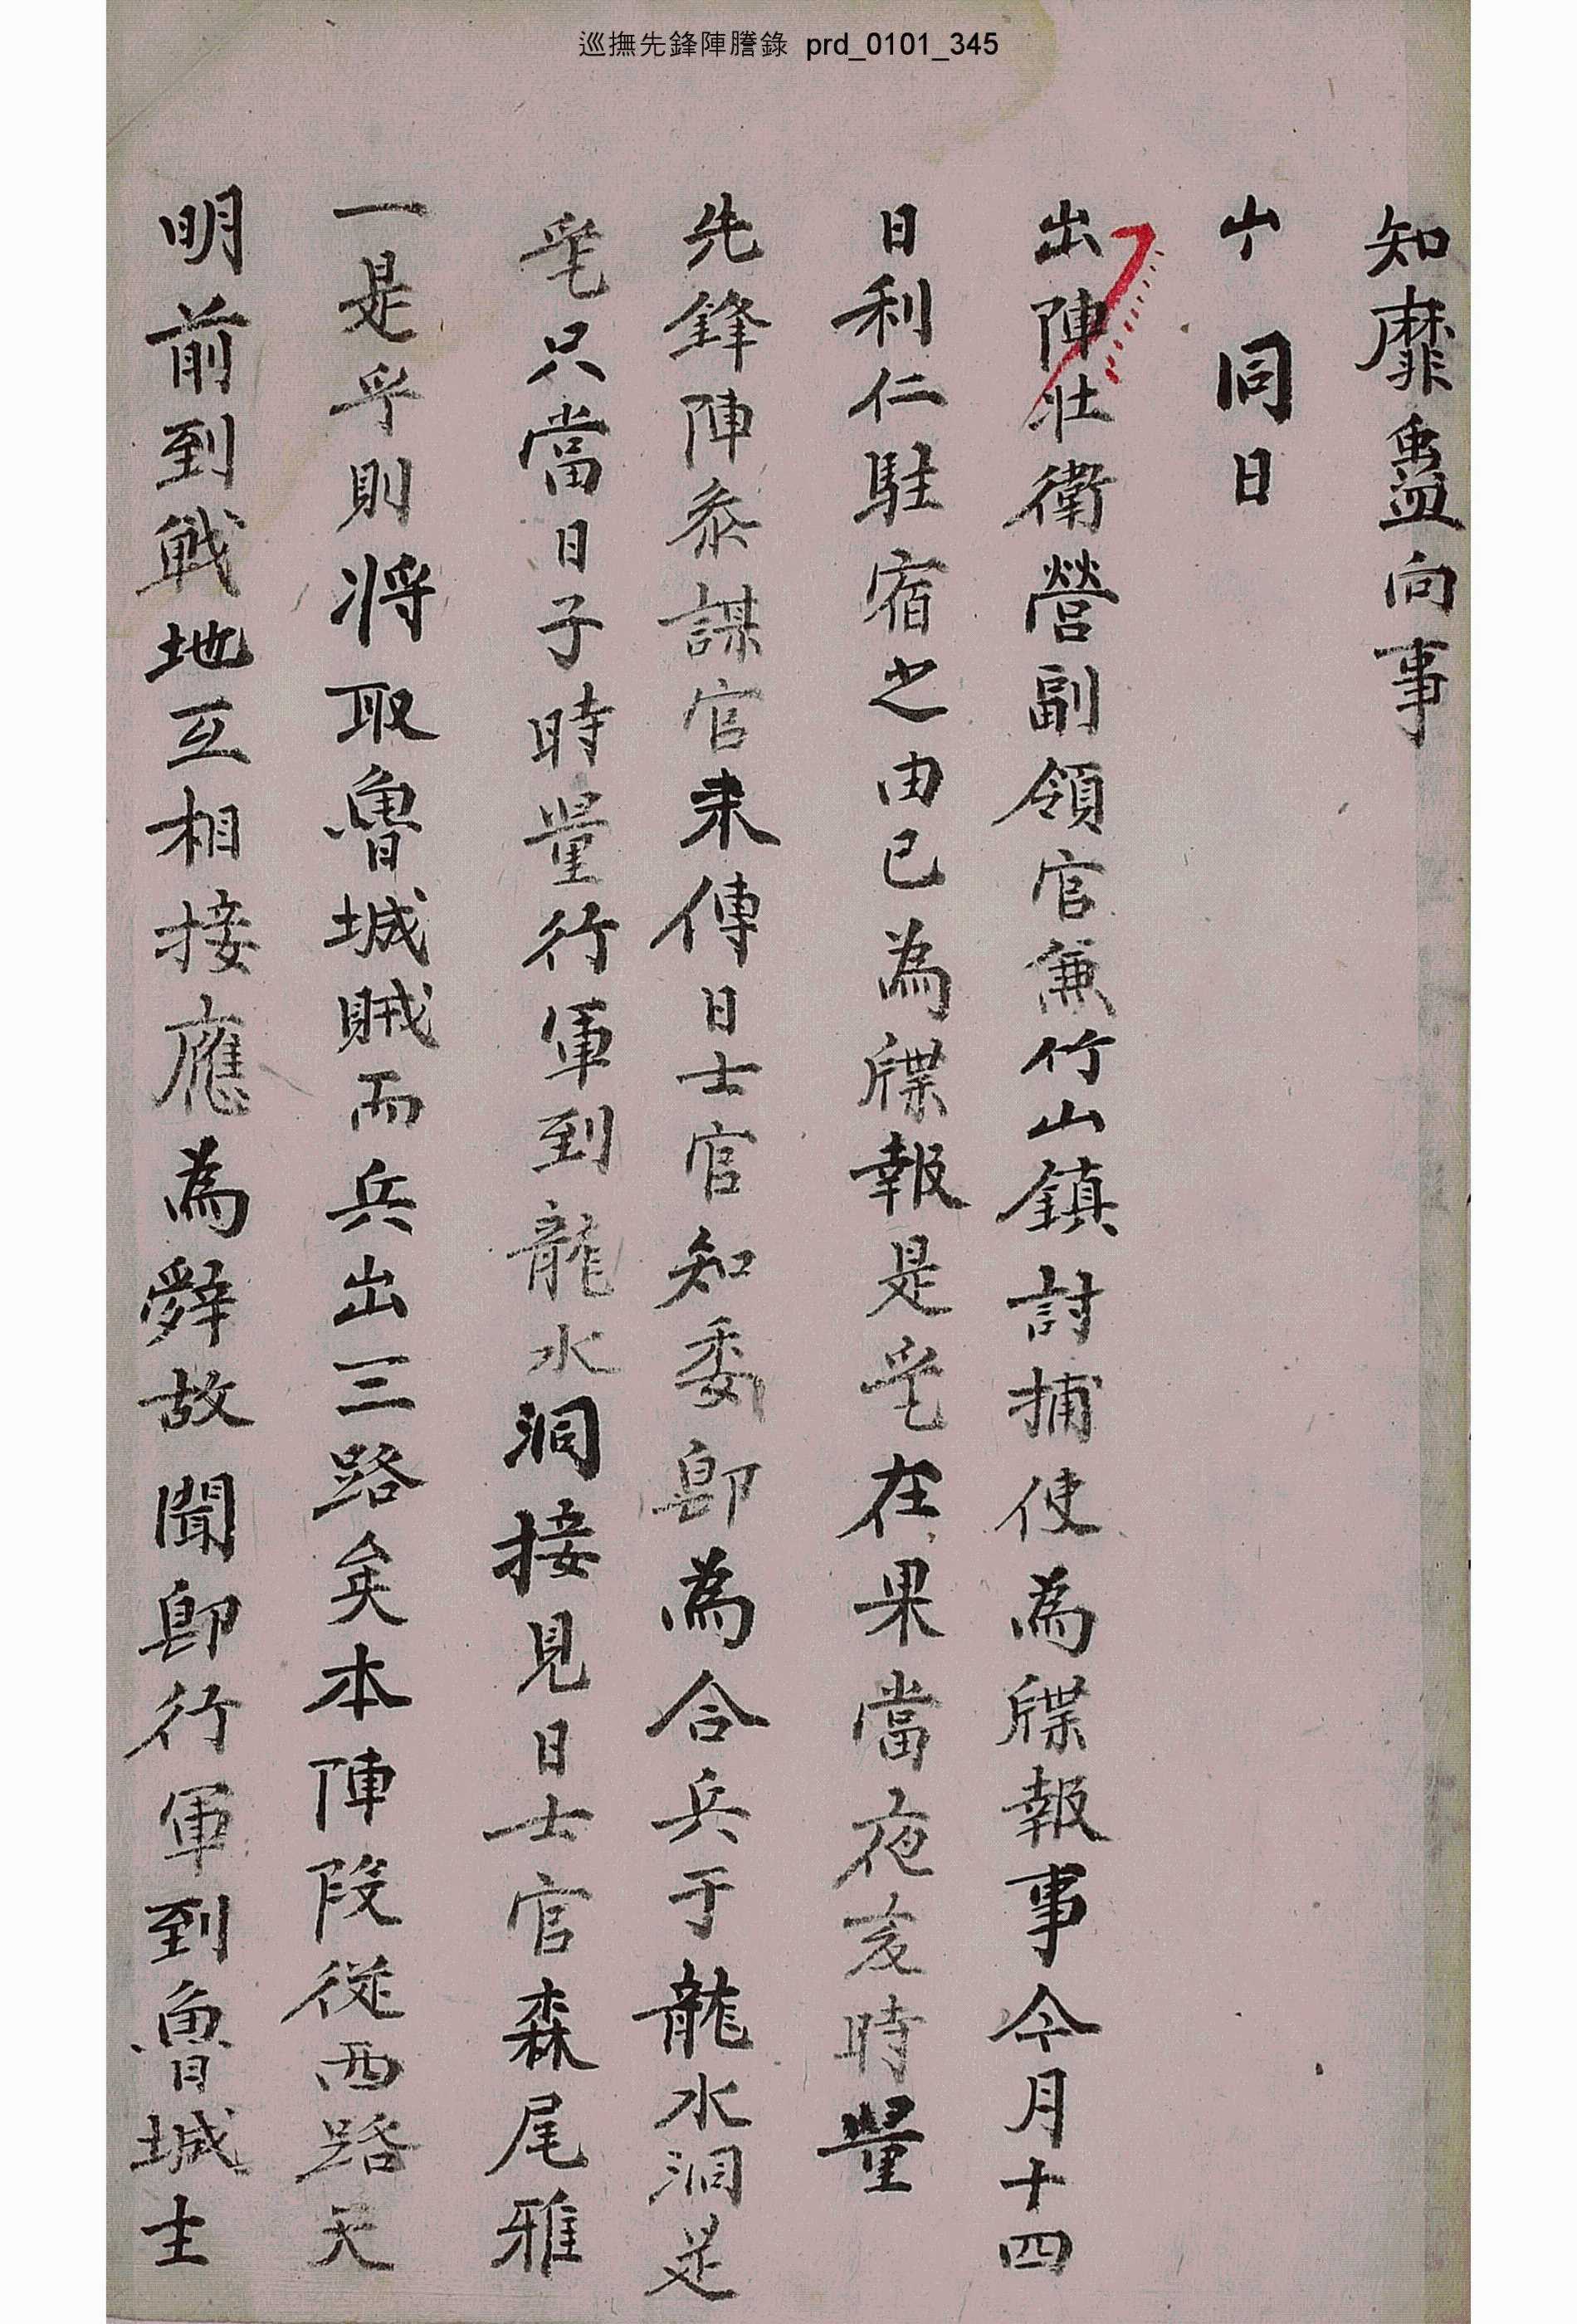 巡撫先鋒陣謄錄 prd_0101_345
知靡盬向事
同日
出陣壯衛營副領官兼竹山鎭討捕使為牒報事今月十四
日利仁駐宿之由已為牒報是乎在果當夜亥時量
先鋒陣叅謀官来傳日士官知委卽為合兵于龍水洞是
乎只當日子時量行軍到龍水洞接見日士官森尾雅
一是乎則将取魯城賊而兵出三路矣本陣段從西路天
明前到戦地互相接應為辞故聞卽行軍到魯城主